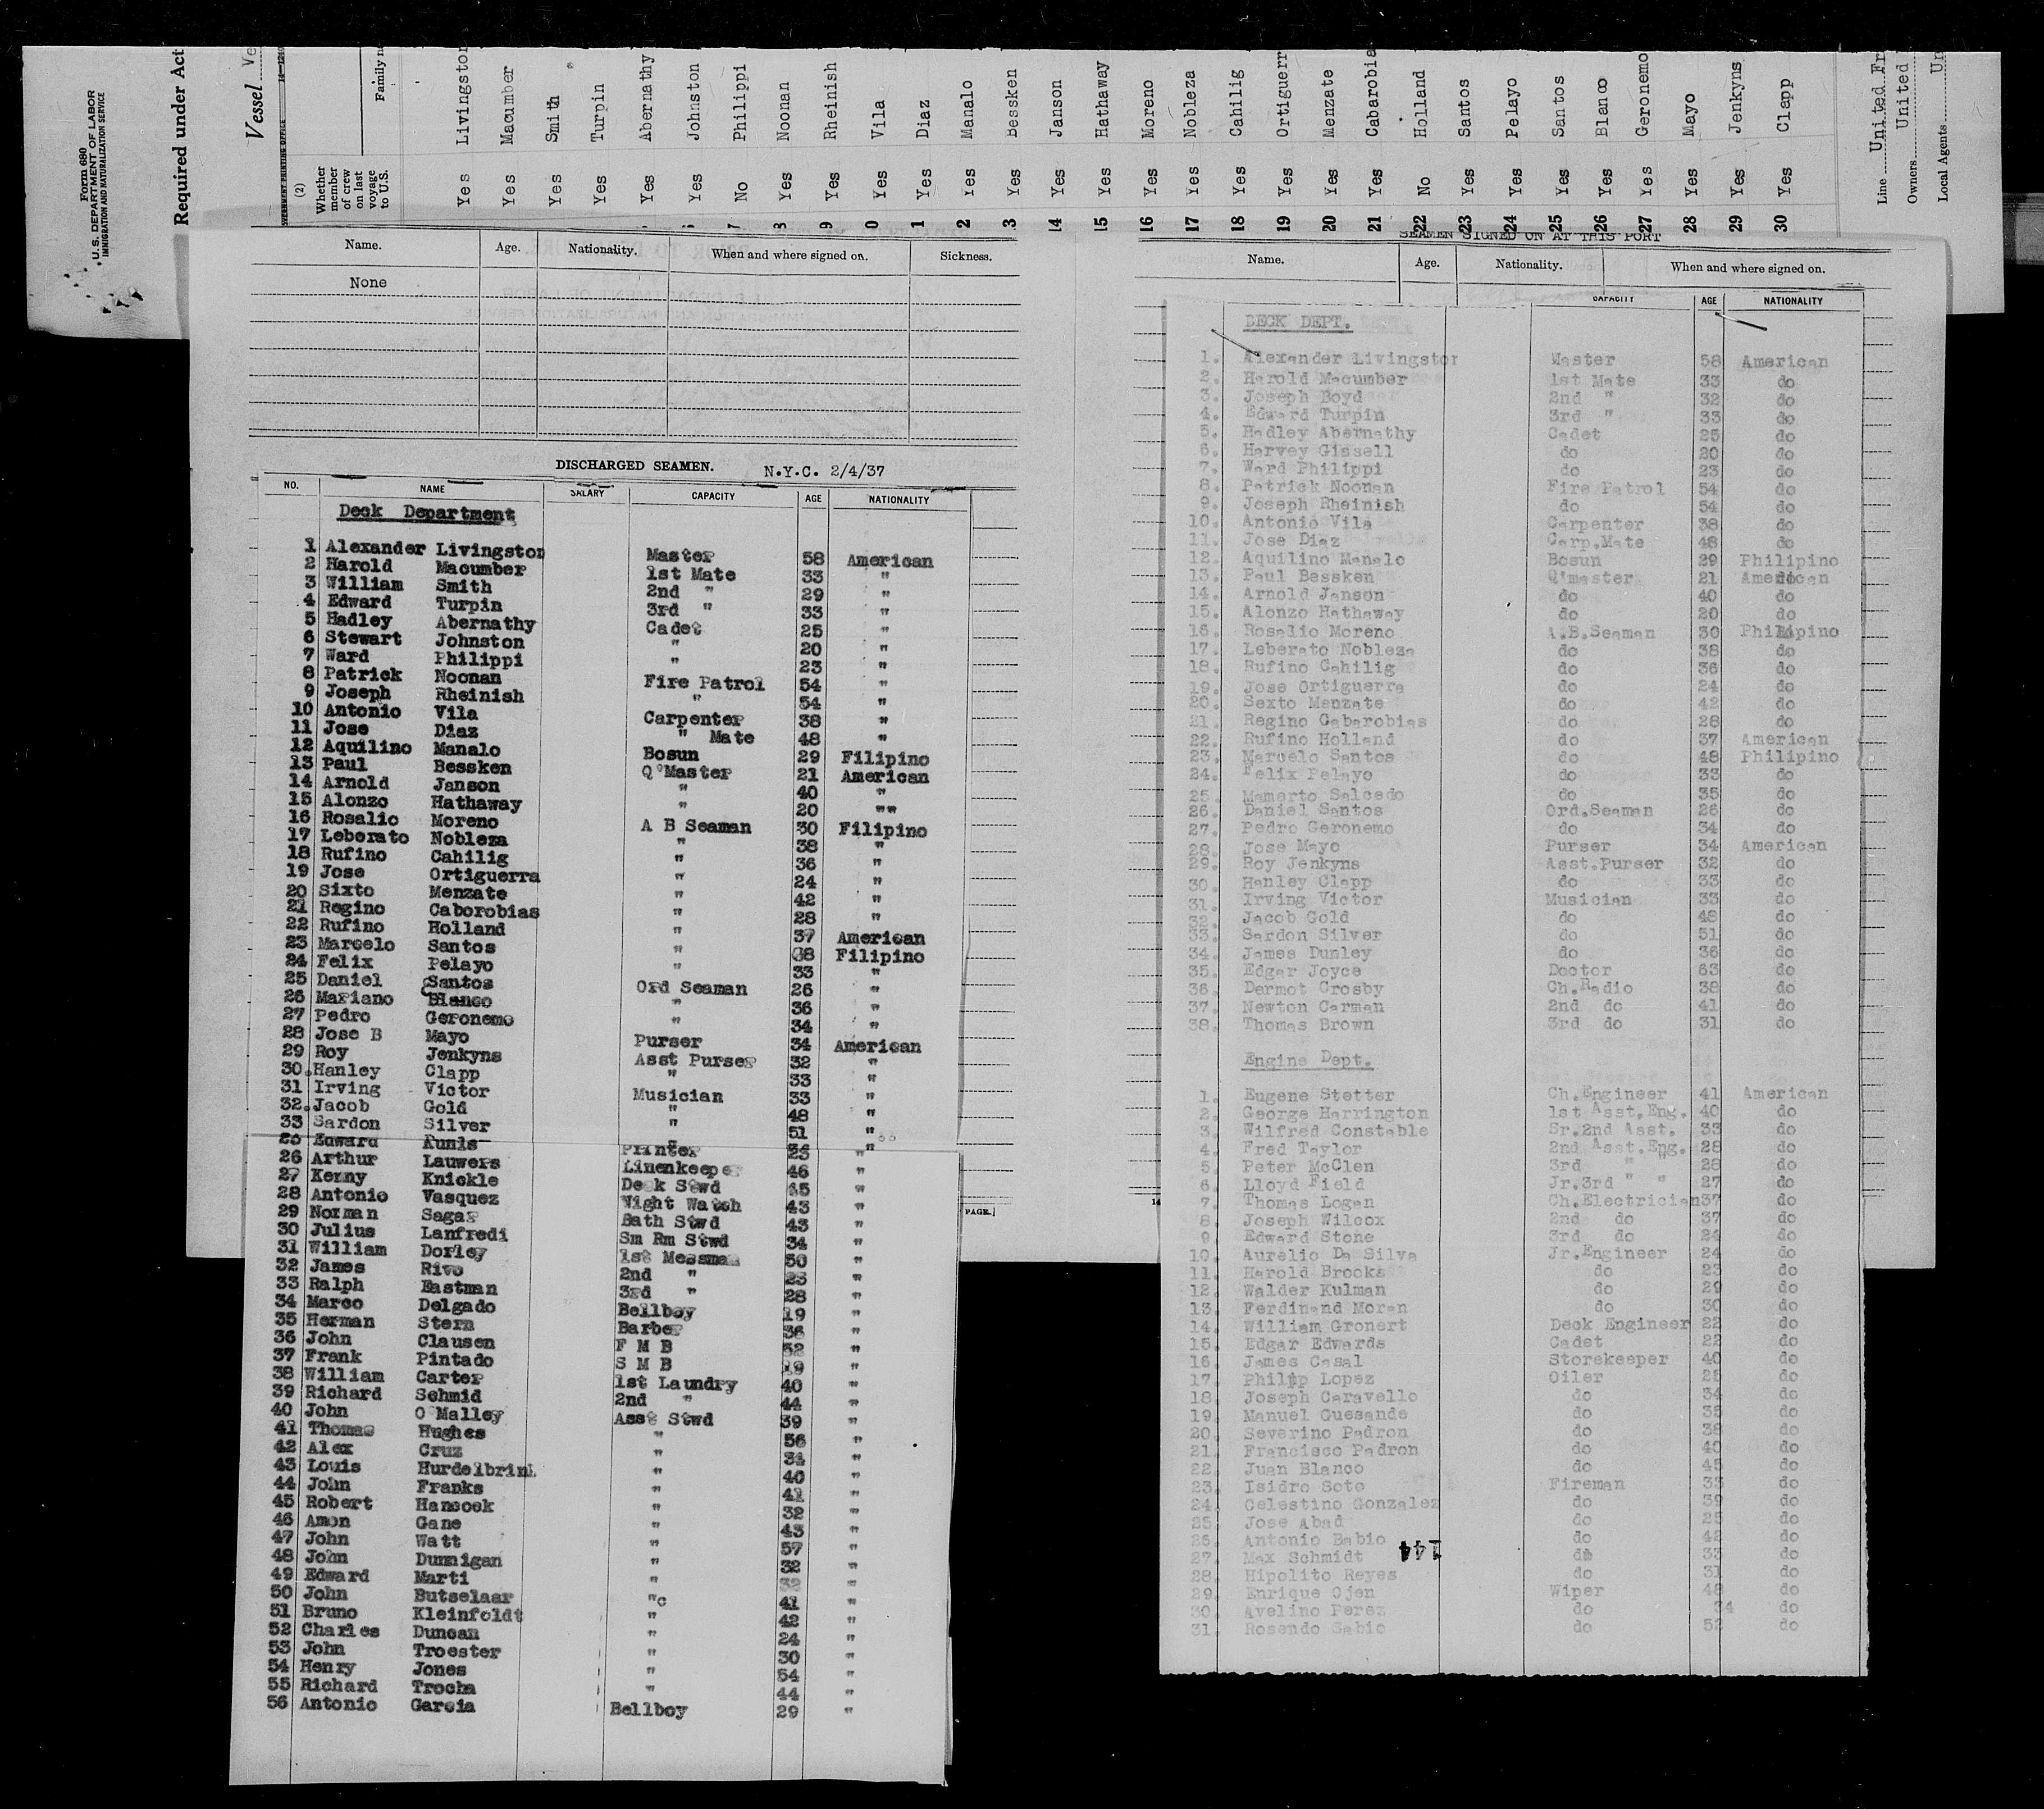 Form 680
U. S. DEPARTMENT OF LABOR
IMMIGRATION AND NATURALIZATION SERVICE
Required under Act
Vessel
(2)
Whether member of crew on last voyage to U.S.
Yes Livingston
Yes Macumber
Yes Smith
Yes Turpin
Yes Abernathy
Yes Johnston
7 No Philippi
8 Yes Noonan
9 Yes Rheinish
0 Yes Vila
1 Yes Diaz
2 Yes Manalo
3 Yes Bessken
14 Yes Janson
15 Yes Hathaway
16 Yes Moreno
17 Yes Nobleza
18 Yes Cahilig
19 Yes Ortiguerr
20 Yes Menzate
21 Yes Cabarobia
22 No Holland
23 Yes Santos
24 Yes Pelayo
25 Yes Santos
26 Yes Blanco
27 Yes Geronemo
28 Yes Mayo
29 Yes Jenkyns
30 Yes Clapp
Line United Fr
Owners United
Local Agents Un
Name. Age. Nationality. When and where signed on. Sickness.
None
DISCHARGED SEAMEN. N.Y.C. 2/4/37
NO. NAME SALARY CAPACITY AGE NATIONALITY
Deck Department
1 Alexander Livingston Master 58 American
2 Harold Macumber 1st Mate 33 "
3 William Smith 2nd " 29 "
4 Edward Turpin 3rd " 33 "
5 Hadley Abernathy Cadet 25 "
6 Stewart Johnston " 20 "
7 Ward Philippi " 23 "
8 Patrick Noonan Fire Patrol 54 "
9 Joseph Rheinish " 54 "
10 Antonio Vila Carpenter 38 "
11 Jose Diaz " Mate 48 "
12 Aquilino Manalo Bosun 29 Filipino
13 Paul Bessken Q'Master 21 American
14 Arnold Janson " 40 "
15 Alonzo Hathaway " 20 ""
16 Rosalio Moreno A B Seaman 30 Filipino
17 Leberato Nobleza " 38 "
18 Rufino Cahilig " 36 "
19 Jose Ortiguerra " 24 "
20 Sixto Menzate " 42 "
21 Regino Caborobias " 28 "
22 Rufino Holland " 37 American
23 Marcelo Santos " 38 Filipino
24 Felix Pelayo " 33 "
25 Daniel Santos Ord Seaman 26 "
26 Mariano Blanco " 36 "
27 Pedro Geronemo " 34 "
28 Jose B Mayo Purser 34 American
29 Roy Jenkyns Asst Purser 32 "
30. Hanley Clapp " 33 "
31 Irving Victor Musician 33 "
32. Jacob Gold " 48 "
33 Sardon Silver " 51 "
Edward Printer "
26 Arthur Lauwers Linenkeeper 46 "
27 Kenny Knickle Deck Stwd "
28 Antonio Vasquez Night Watch 43 "
29 Norman Sagar Bath Stwd 43 "
30 Julius Lanfredi Sm Rm Stwd 34 "
31 William Dorley 1st Messman 50 "
32 James Rivo 2nd " 23 "
33 Ralph Eastman 3rd " 28 "
34 Marco Delgado Bellboy 19 "
35 Herman Stern Barber 36 "
36 John Clausen F M B 52 "
37 Frank Pintado S M B 19 "
38 William Carter 1st Laundry 40 "
39 Richard Schmid 2nd " 44 "
40 John O'Malley Asst Stwd 39 "
41 Thomas Hughes " 56 "
42 Alex Cruz " 34 "
43 Louis Hurdelbrink " 40 "
44 John Franks " 41 "
45 Robert Hancock " 32 "
46 Amon Gane " 43 "
47 John Watt " 57 "
48 John Dunnigan " 32 "
49 Edward Marti " 32 "
50 John Butselaar " 41 "
51 Bruno Kleinfeldt " 42 "
52 Charles Duncan " 24 "
53 John Troester " 30 "
54 Henry Jones " 54 "
55 Richard Trocha " 44 "
56 Antonio Garcia Bellboy 29 "
PAGE.
SEAMEN SIGNED ON AT THIS PORT
Name. Age. Nationality. When and where signed on.
CAPACITY AGE NATIONALITY
DECK DEPT.
1. Alexander Livingston Master 58 American
2. Harold Macumber 1st Mate 33 do
3. Joseph Boyd 2nd " 32 do
4. Edward Turpin 3rd " 33 do
5. Hadley Abernathy Cadet 25 do
6. Harvey Gissell do 20 do
7. Ward Philippi do 23 do
8. Patrick Noonan Fire Patrol 54 do
9. Joseph Rheinish do 54 do
10. Antonio Vila Carpenter 38 do
11. Jose Diaz Carp.Mate 48 do
12. Aquilino Manalo Bosun 29 Philipino
13. Paul Bessken Q'master 21 American
14. Arnold Janson do 40 do
15. Alonzo Hathaway do 20 do
16. Rosalio Moreno A.B.Seaman 30 Philipino
17. Leberato Nobleza do 38 do
18. Rufino Cahilig do 36 do
19. Jose Ortiguerra do 24 do
20. Sexto Menzate do 42 do
21. Regino Cabarobias do 28 do
22. Rufino Holland do 37 American
23. Marcelo Santos do 48 Philipino
24. Felix Pelayo do 33 do
25. Mamerto Salcedo do 35 do
26. Daniel Santos Ord.Seaman 26 do
27. Pedro Geronemo do 34 do
28. Jose Mayo Purser 34 American
29. Roy Jenkyns Asst.Purser 32 do
30. Hanley Clapp do 33 do
31. Irving Victor Musician 33 do
32. Jacob Gold do 48 do
33. Sardon Silver do 51 do
34. James Dunley do 36 do
35. Edgar Joyce Doctor 63 do
36. Dermot Crosby Ch.Radio 38 do
37. Newton Carman 2nd do 41 do
38. Thomas Brown 3rd do 31 do
Engine Dept.
1. Eugene Stetter Ch.Engineer 41 American
2. George Harrington 1st Asst.Eng. 40 do
3. Wilfred Constable Sr.2nd Asst. 33 do
4. Fred Taylor 2nd Asst.Eng. 28 do
5. Peter McClen 3rd " 28 do
6. Lloyd Field Jr.3rd " " 27 do
7. Thomas Logan Ch.Electrician 37 do
8. Joseph Wilcox 2nd do 37 do
9. Edward Stone 3rd do 24 do
10. Aurelio Da Silva Jr.Engineer 24 do
11. Harold Brooks do 23 do
12. Walder Kulman do 29 do
13. Ferdinand Moran do 30 do
14. William Gronert Deck Engineer 22 do
15. Edgar Edwards Cadet 22 do
16. James Casal Storekeeper 40 do
17. Philip Lopez Oiler 25 do
18. Joseph Caravello do 34 do
19. Manuel Guesande do 35 do
20. Severino Padron do 38 do
21. Francisco Padron do 40 do
22. Juan Blanco do 45 do
23. Isidro Soto Fireman 33 do
24. Celestino Gonzalez do 39 do
25. Jose Abad do 25 do
26. Antonio Babio do 42 do
27. Max Schmidt do 33 do
28. Hipolito Reyes do 31 do
29. Enrique Ojen Wiper 48 do
30. Avelino Perez do 34 do
31. Rosendo Sabio do 52 do
144